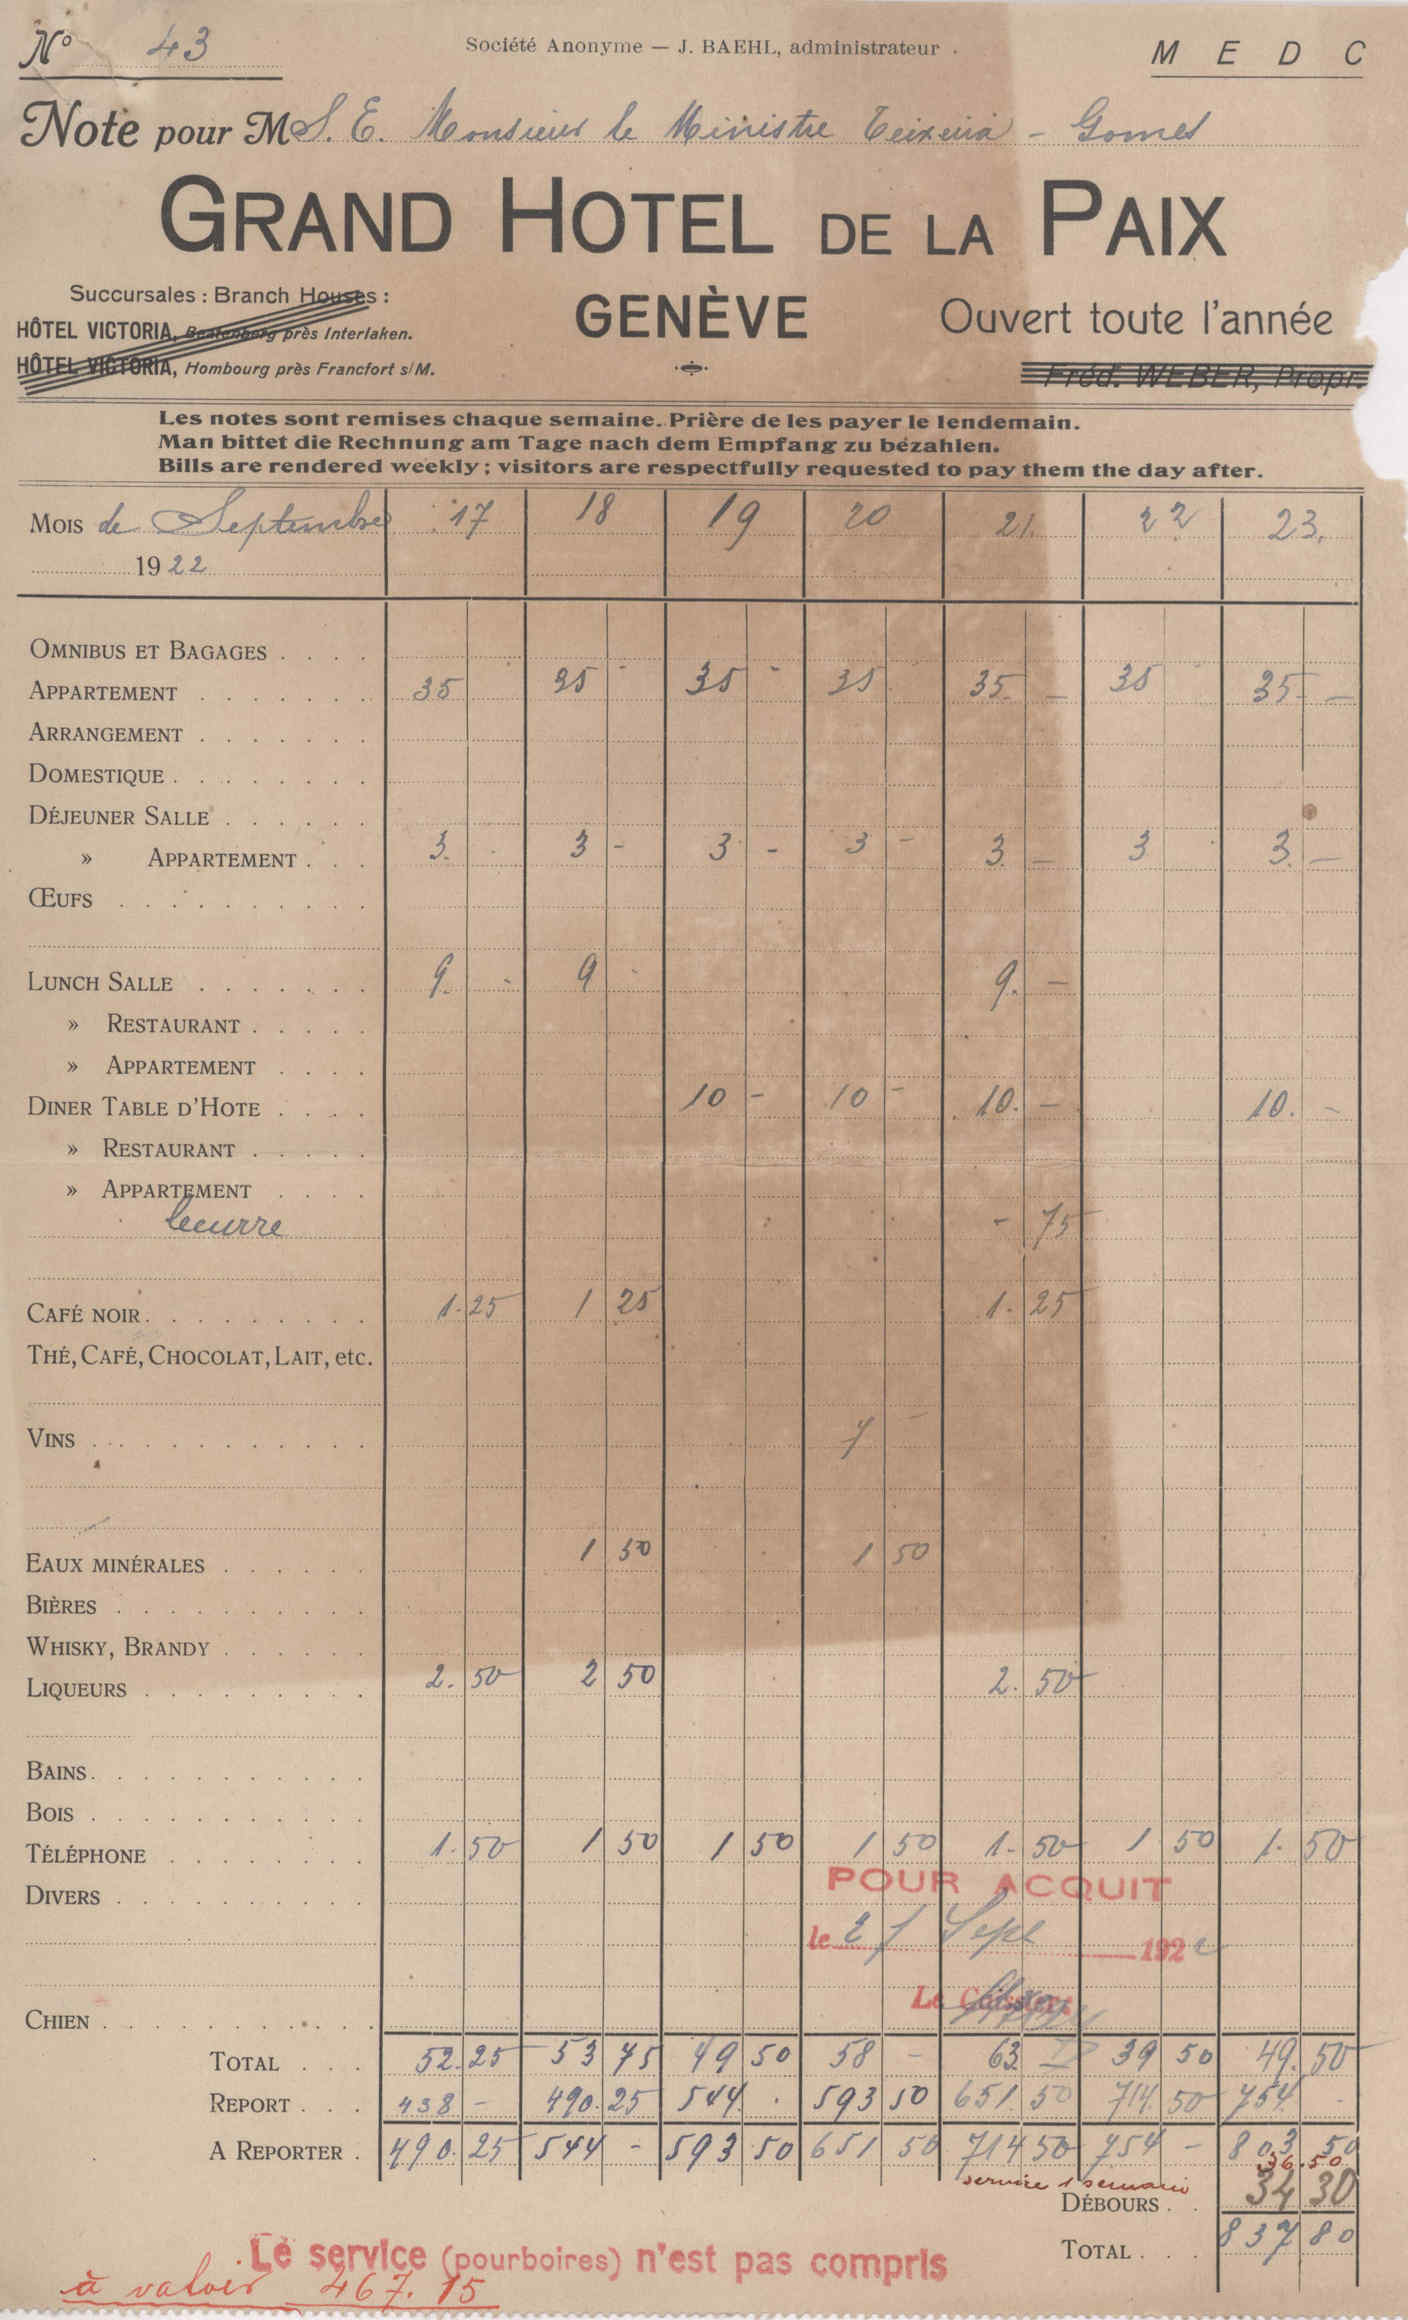 Nº 43
Société Anonyme — J. BAEHL, administrateur.
M E D C
Note pour M S. E. Monsieur le Ministre Teixeira - Gomes
GRAND HOTEL DE LA PAIX
Succursales : Branch Houses :
HÔTEL VICTORIA, Beatenberg près Interlaken.
HÔTEL VICTORIA, Hombourg près Francfort s/M.
GENÈVE
Ouvert toute l'année
Fréd. WEBER, Propr.
Les notes sont remises chaque semaine. Prière de les payer le lendemain.
Man bittet die Rechnung am Tage nach dem Empfang zu bezahlen.
Bills are rendered weekly ; visitors are respectfully requested to pay them the day after.
MOIS de Septembre 17 18 19 20 21. 22 23.
1922
OMNIBUS ET BAGAGES . . . .
APPARTEMENT . . . . . . . 35 35 - 35 - 35 35. — 35 35. —
ARRANGEMENT . . . . . . .
DOMESTIQUE . . . . . . . .
DÉJEUNER SALLE . . . . . .
» APPARTEMENT . . . 3. - 3 - 3 - 3 - 3. — 3 3. —
ŒUFS . . . . . . . . . .
LUNCH SALLE . . . . . . . 9. - 9 - 9. —
» RESTAURANT . . . . .
» APPARTEMENT . . . .
DINER TABLE D'HOTE . . . . 10 - 10 - 10. — 10. -
» RESTAURANT . . . . .
» APPARTEMENT . . . .
beurre - 75
CAFÉ NOIR . . . . . . . . . 1.25 1 25 1. 25
THÉ, CAFÉ, CHOCOLAT, LAIT, etc.
VINS . . . . . . . . . . . 7 -
EAUX MINÉRALES . . . . . . 1 50 1 50
BIÈRES . . . . . . . . . .
WHISKY, BRANDY . . . . . .
LIQUEURS . . . . . . . . . 2.50 2 50 2. 50
BAINS . . . . . . . . . . .
BOIS . . . . . . . . . . .
TÉLÉPHONE . . . . . . . . 1.50 1 50 1 50 1 50 1. 50 1 50 1. 50
POUR ACQUIT
DIVERS . . . . . . . . . .
le Sept 1922
Le Caissier:
CHIEN . . . . . . . . . . .
TOTAL . . . 52.25 53 75 49 50 58 - 63. 39 50 49. 50
REPORT . . . 438 - 490.25 544. . 593 50 651. 50 714. 50 754. -
A REPORTER . 490.25 544 - 593 50 651 50 714 50 754 - 803 50
service 1 semaine 36.50
DÉBOURS . . 34 30
TOTAL . . . 837 80
Le service (pourboires) n'est pas compris
à valoir 467.15